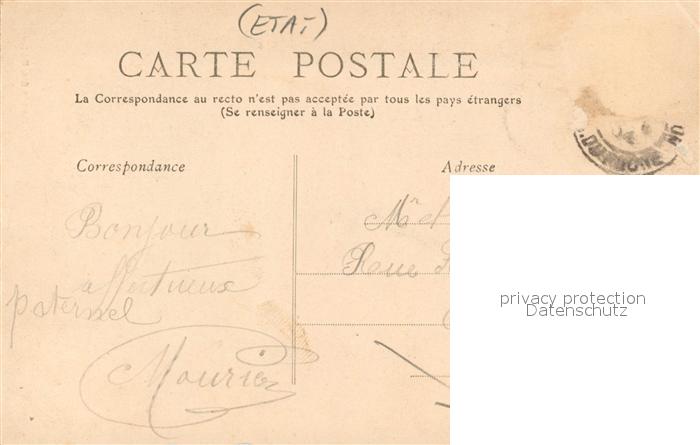 (ETAT)
CARTE POSTALE
La Correspondance au recto n'est pas acceptée par tous les pays étrangers
(Se renseigner à la Poste)
Correspondance
Adresse
Bonjour
affectueux
paternel
Mr et
Rue
privacy protection
Datenschutz